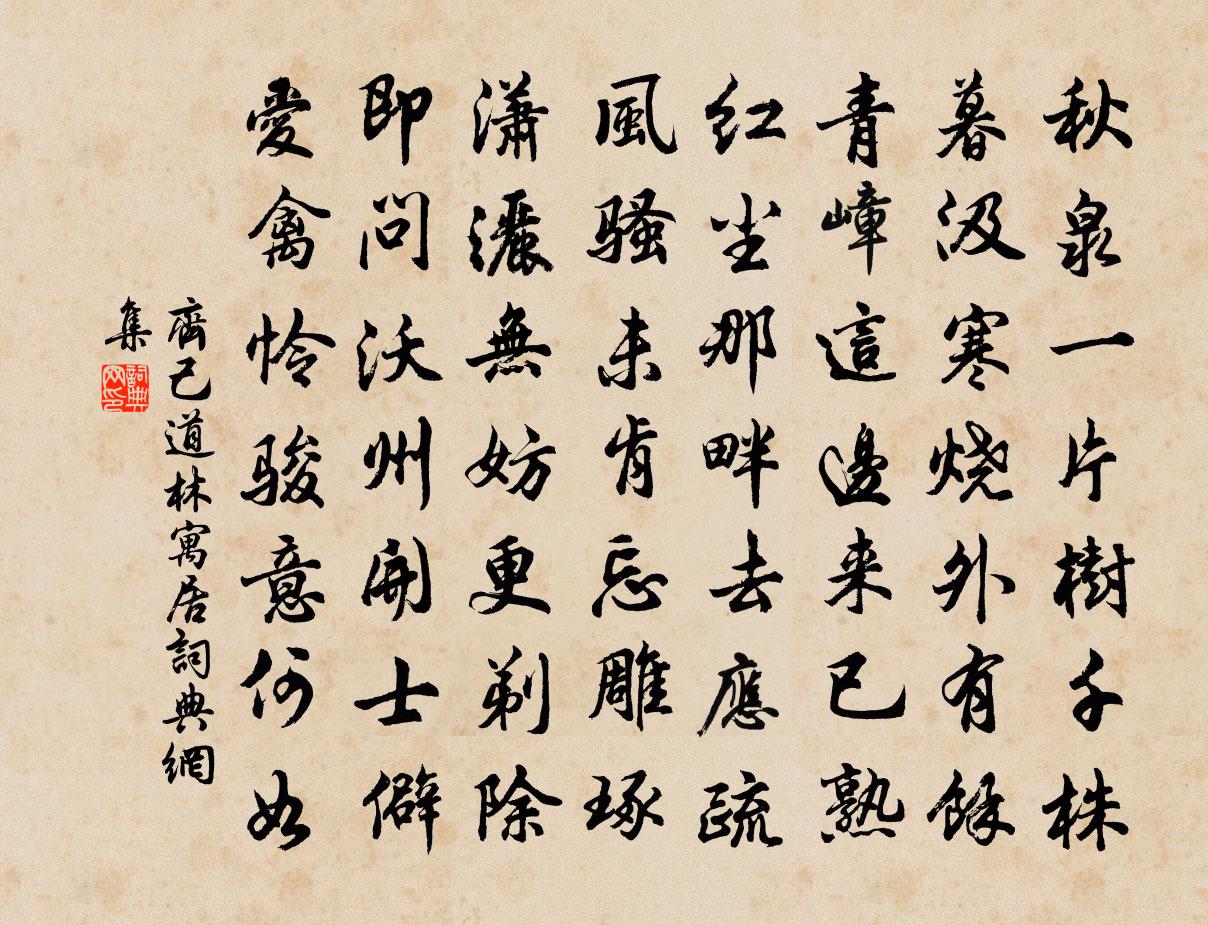 秋泉一片樹千株
暮汲寒燒外有餘
青嶂這邊来已熟
紅尘那畔去應疏
風騷未肯忘雕琢
瀟灑無妨更剃除
即問沃州開士僻
愛禽怜駿意何如
齊己道林寓居詞典網
集
詞典
网印